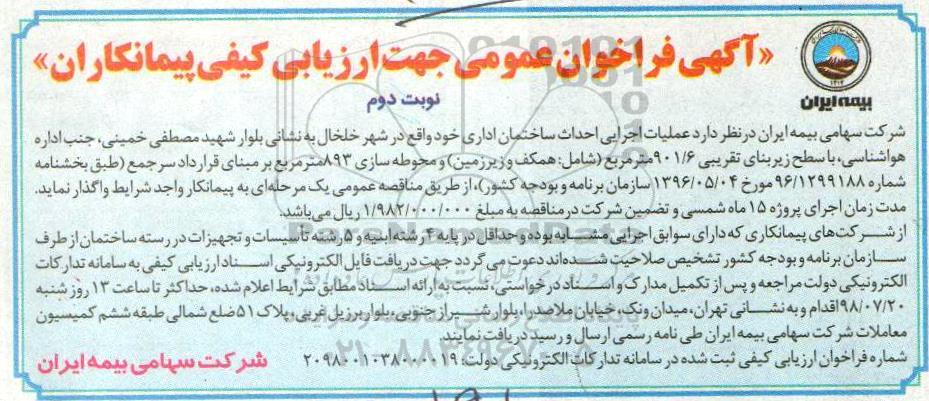 «آگهی فراخوان عمومی جهت ارزیابی کیفی پیمانکاران»
بیمه ایران
نوبت دوم
شرکت سهامی بیمه ایران در نظر دارد عملیات اجرایی احداث ساختمان اداری خود واقع در شهر خلخال به نشانی بلوار شهید مصطفی خمینی، جنب اداره
هواشناسی، با سطح زیربنای تقریبی ۹۰۱/۶ مترمربع (شامل: همکف و زیرزمین) و محوطه سازی ۸۹۳ مترمربع بر مبنای قرارداد سرجمع (طبق بخشنامه
شماره ۹۶/۱۲۹۹۱۸۸ مورخ ۱۳۹۶/۰۵/۰۴ سازمان برنامه و بودجه کشور)، از طریق مناقصه عمومی یک مرحله‌ای به پیمانکار واجد شرایط واگذار نماید.
مدت زمان اجرای پروژه ۱۵ ماه شمسی و تضمین شرکت در مناقصه به مبلغ ۱/۹۸۲/۰۰۰/۰۰۰ ریال می‌باشد.
از شرکت‌های پیمانکاری که دارای سوابق اجرایی مشابه بوده و حداقل در پایه ۴ رشته ابنیه و ۵ رشته تأسیسات و تجهیزات در رسته ساختمان از طرف
سازمان برنامه و بودجه کشور تشخیص صلاحیت شده‌اند دعوت می گردد جهت دریافت فایل الکترونیکی اسناد ارزیابی کیفی به سامانه تدارکات
الکترونیکی دولت مراجعه و پس از تکمیل مدارک و اسناد درخواستی، نسبت به ارائه اسناد مطابق شرایط اعلام شده، حداکثر تا ساعت ۱۳ روز شنبه
۹۸/۰۷/۲۰ اقدام و به نشانی تهران، میدان ونک، خیابان ملاصدرا، بلوار شیراز جنوبی، بلوار برزیل غربی، پلاک ۵۱ ضلع شمالی طبقه ششم کمیسیون
معاملات شرکت سهامی بیمه ایران طی نامه رسمی ارسال و رسید دریافت نمایند
شماره فراخوان ارزیابی کیفی ثبت شده در سامانه تدارکات الکترونیکی دولت: ۲۰۹۸۰۰۱۰۳۸۰۰۰۰۱۹
شرکت سهامی بیمه ایران